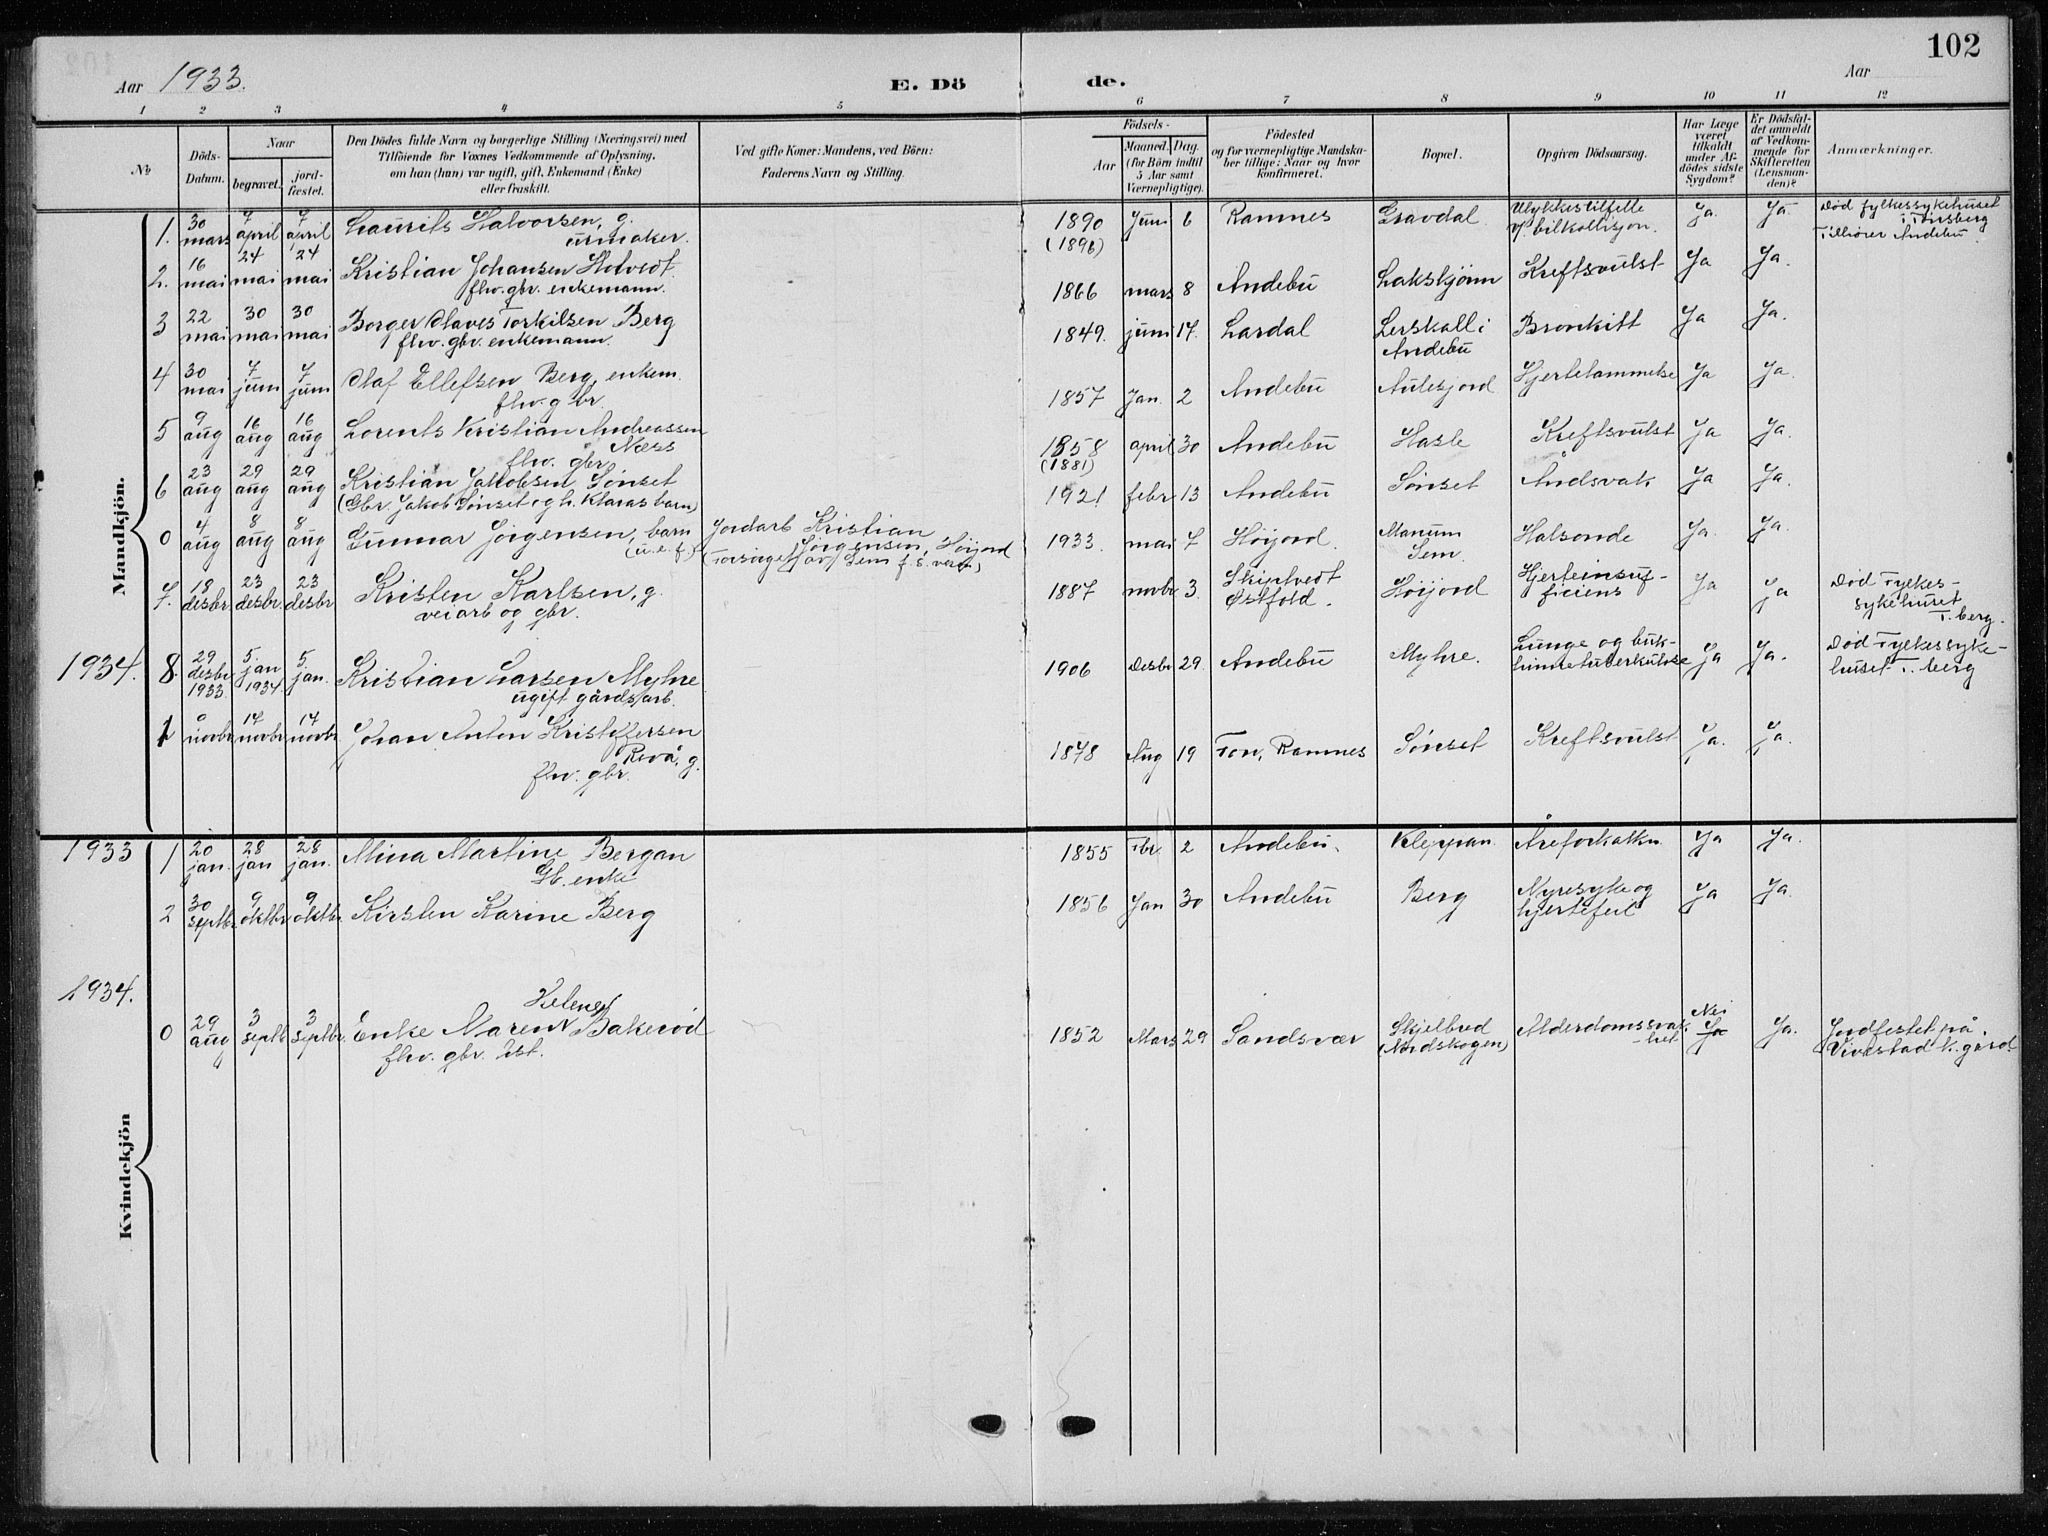 102
Aar 1933.
E. Dö de.
Aar
1 2 3 4 5 6 7 8 9 10 11 12
No
Döds-Datum.
Naar
begravet.
jord-fæstet.
Den Dödes fulde Navn og borgerlige Stilling (Næringsvei) med
Tilföiende for Voxnes Vedkommende af Oplysning,
om han (hun) var ugift, gift, Enkemand (Enke)
eller fraskilt.
Ved gifte Koner: Mandens, ved Börn:
Faderens Navn og Stilling.
Födsels-
Aar
Maaned. Dag.
(for Börn indtil
5 Aar samt
Værnepligtige).
Födested
og for værnepligtige Mandska-
ber tillige: Naar og hvor
konfirmeret.
Bopæl.
Opgiven Dödsaarsag.
Har Læge
været
tilkaldt
under Af-
dödes sidste
Sygdom?
Er Dödsfal-
det anmeldt
af Vedkom-
mende for
Skifteretten
(Lensman-
den)?
Anmærkninger.
Mandkjön.
1. 30 mars 7 april 7 april Laurits Halvorsen, g. urmaker. 1890 (1896) Juni 6 Ramnes Gravdal Ulykkestilfelle v/ bilkollisjon. Ja. Ja Död fylkessykehuset i Tönsberg Tilhörer Andebu.
2. 16 mai 24 mai 24 mai Kristian Johansen Holvedt fhv. gbr. enkemann. 1866 mars 8 Andebu Lakskjønn Kreftsvulst Ja Ja.
3 22 mai 30 mai 30 mai Borger Olaves Torkilsen Berg fhv. gbr. enkemann. 1849. juni 17. Lardal Lerskall i Andebu Bronkitt Ja Ja.
4 30 mai 7 juni 7 juni Olaf Ellefsen Berg, enkem. fhv. gbr. 1857 Jan. 2 Andebu Aulesjord Hjertelammelse Ja Ja.
5 9 aug 16 aug 16 aug Lorents Kristian Andreassen Næss fhv. gbr. 1858 (1881) april 30 Andebu Hasle Kreftsvulst Ja Ja.
6 23 aug 29 aug 29 aug Kristian Jakobsen Sønset (Gbr. Jakob Sønset og h. Klaras barn) 1921 febr 13 Andebu Sønset Åndsvak Ja Ja.
0 4 aug 8 aug 8 aug Gunnar Jørgensen, barn (u.e.f.) Jordarb Kristian Jørgensen, Høijord 1933. mai 7 Høijord. Manum Sem. Halsonde Ja. Ja.
7. 18 desbr. 23 desbr. 23 desbr Kristen Karlsen, g. veiarb og gbr. 1887 novbr 3. Skiptvedt Østfold. Høijord Hjerteinsuf-ficiens Ja Ja Död Fylkes-sykehuset T. berg.
1934. 8. 29 desbr 1933. 5 jan 1934. 5 jan. Kristian Larsen Myhre ugift gårdsarb. 1906 Desbr 29. Andebu Myhre. Lunge og buk-hinnetuberkulose Ja Ja. Död Fylkessyke-huset T. berg
1 novbr 17 novbr 17 novbr Johan Anton Kristoffersen Revå, g. fhv. gbr. 1878 Aug 19 Fon, Ramnes Sønset Kreftsvulst Ja. Ja.
Kvindekjön
1933 1 20 jan. 28 jan 28 jan. Mina Martine Bergan Gb. enke 1855 Fbr 2 Andebu. Kleppan Åreforkalkn. Ja Ja.
2 30 septbr. 9 oktbr 9 oktbr Kirsten Karine Berg 1856 Jan 30 Andebu Berg Nyresyke og hjertefeil Ja Ja.
1934. 0 29 aug 3 septb 3 septbr. Enke Maren Helene Bakerød fhv. gbr. 1852 Mars 29 Sandsvær Skjelbred (Nordskogen) Alderdomssvak-het Nei Ja Ja. Jordfestet på Vivestad k. gård.